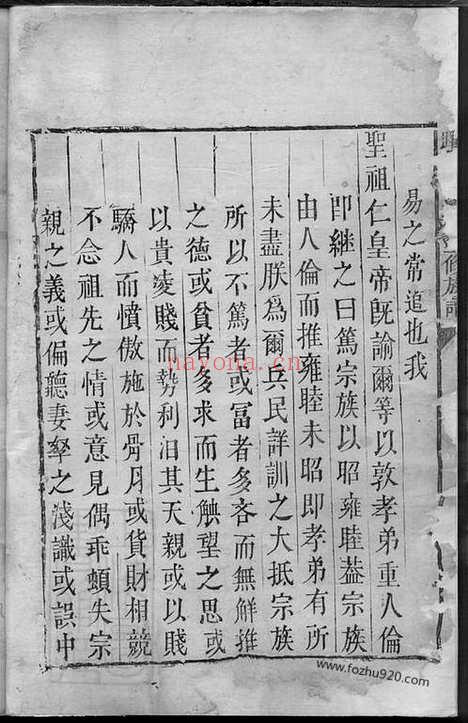 易之常道也我
聖祖仁皇帝旣諭爾等以敦孝弟重人倫
卽繼之曰篤宗族以昭雍睦葢宗族
由人倫而推雍睦未昭卽孝弟有所
未盡朕爲爾兵民詳訓之大抵宗族
所以不篤者或富者多吝而無解推
之德或貧者多求而生觖望之思或
以貴凌賤而勢利汨其天親或以賤
驕人而憤傲施於骨肉或貨財相競
不念祖先之情或意見偶乖頓失宗
親之義或偏聽妻孥之淺識或誤中
修族譜
nayona.cn
www.fozhu920.com